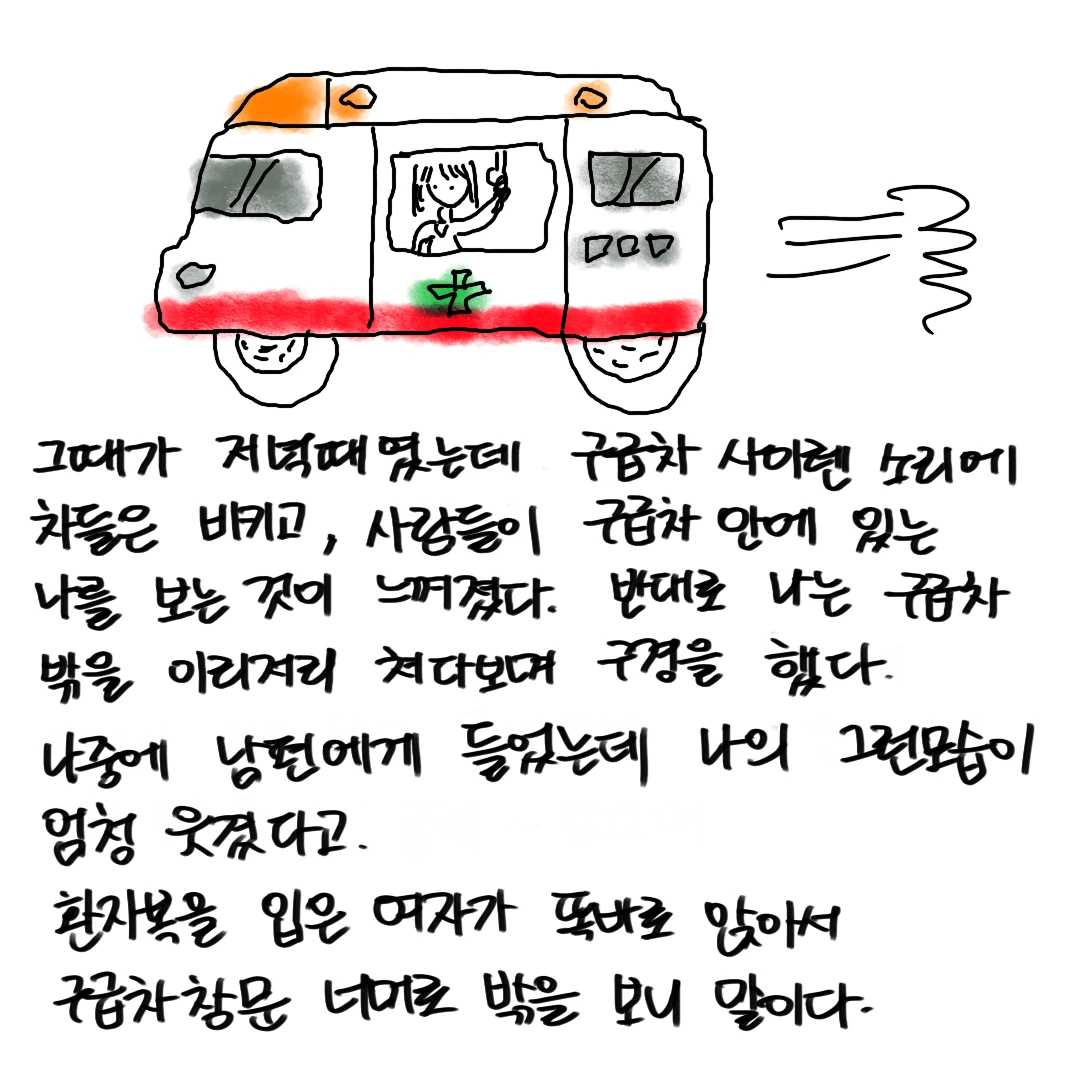 그때가 저녁때였는데 구급차 사이렌 소리에
차들은 비키고, 사람들이 구급차 안에 있는
나를 보는 것이 느껴졌다. 반대로 나는 구급차
밖을 이리저리 쳐다보며 구경을 했다.
나중에 남편에게 들었는데 나의 그런모습이
엄청 웃겼다고.
환자복을 입은 여자가 똑바로 앉아서
구급차 창문 너머로 밖을 보니 말이다.